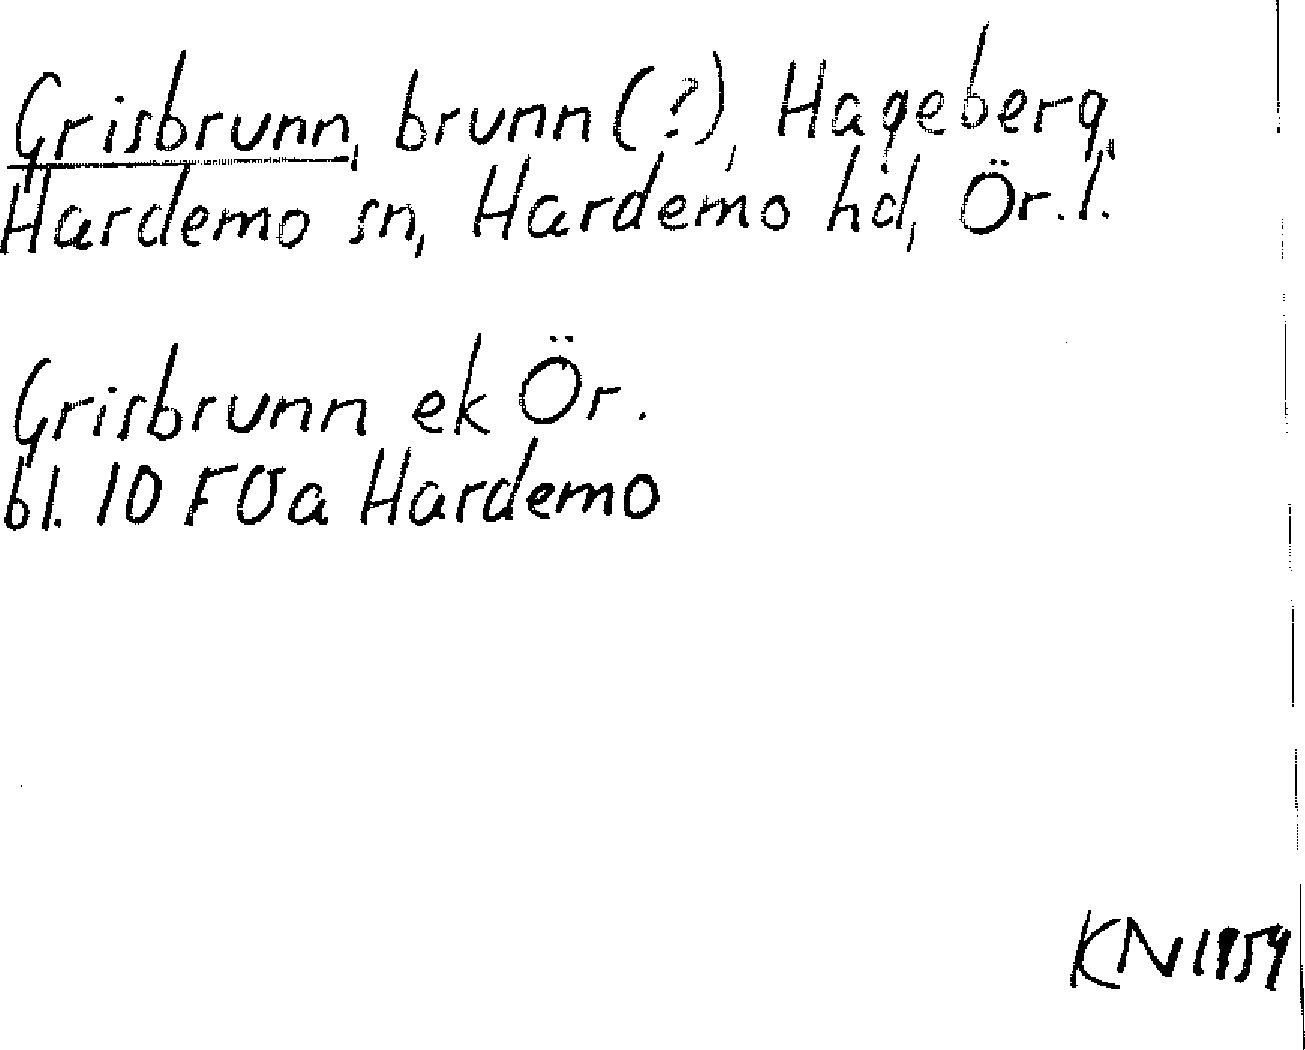 Grisbrunn, brunn (?), Hageberg,
Hardemo sn, Hardemo hd, Ör. l.
Grisbrunn ek Ör.
bl. 10 FOa Hardemo
KN 1954